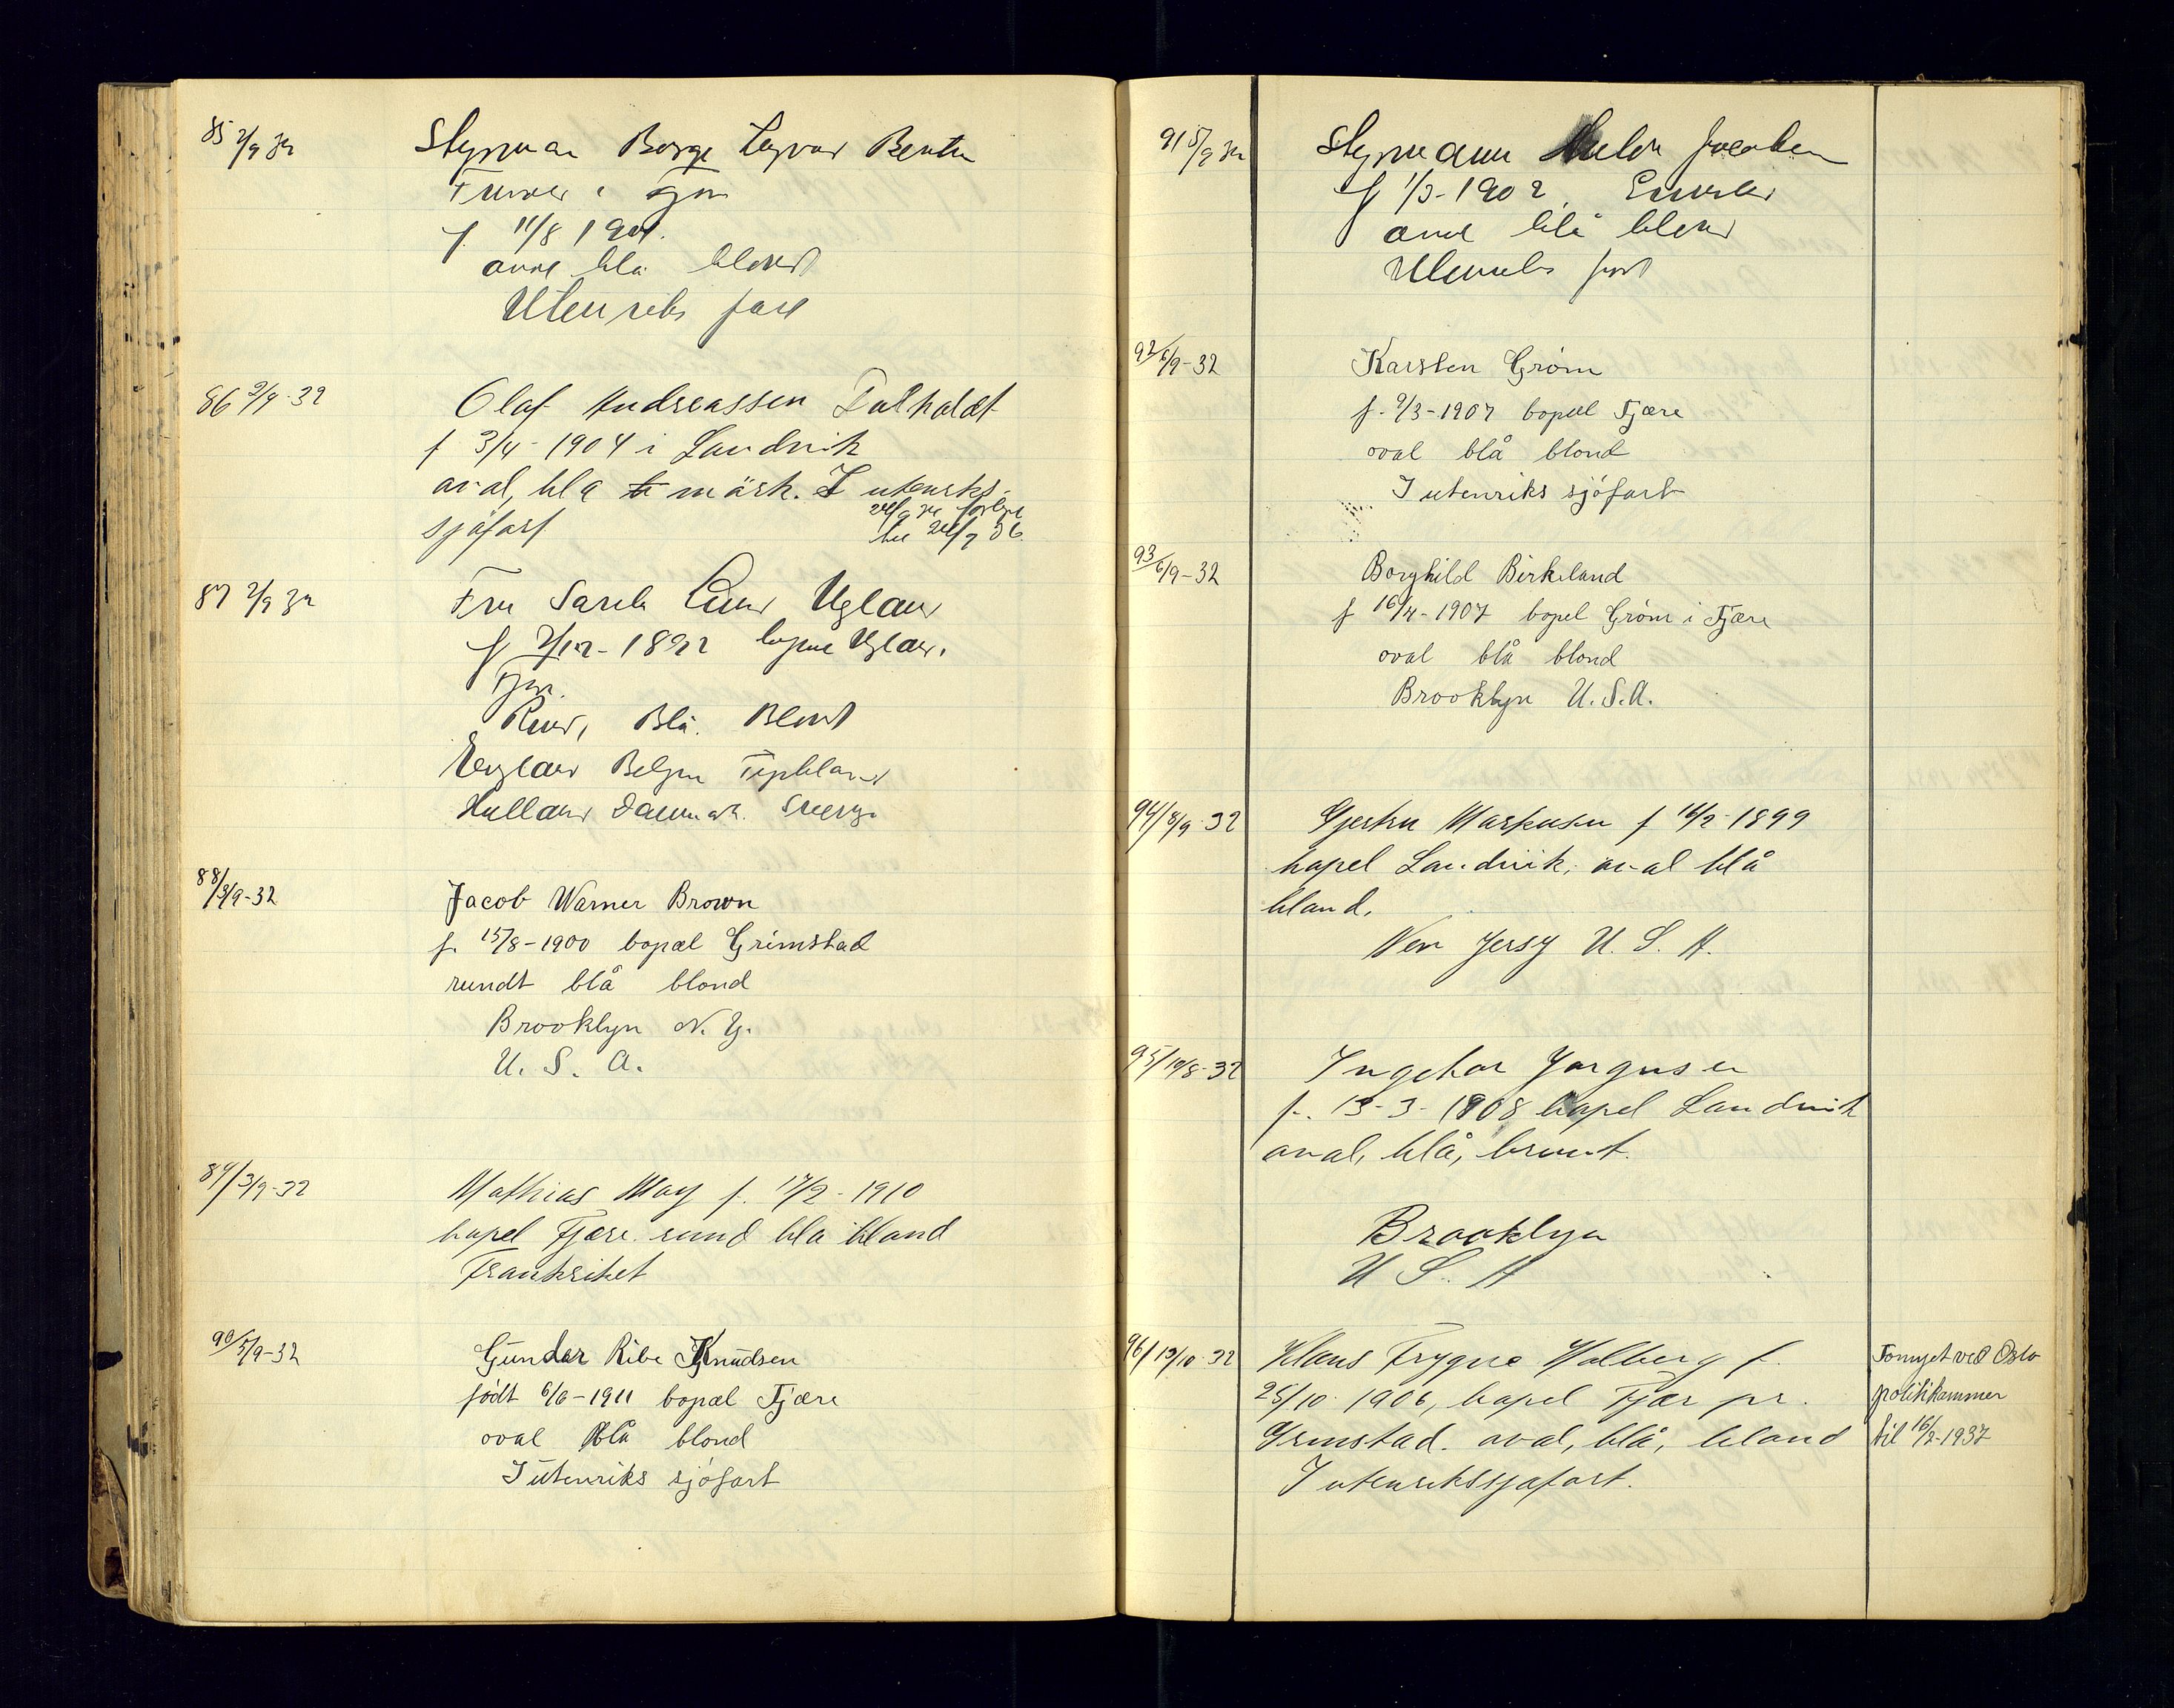 85 2/9 32
Styrman Børge
f. 11/8 190
oval blå blond
Utenriks fart
86 2/9-32
Olaf Andreassen Dalholdt
f 3/4-1904 i Landvik
oval, blå mörk. I utenriks-
sjøfart
til
87 2/9 32
Fru Sara Uglan
f 2/12-1892
Rund, Blå. Blond
England Belgien Tyskland
Holland Danmark. Sverge
88/3/9-32
Jacob Warner Brown
f. 15/8-1900 bopæl Grimstad
rundt blå blond
Brooklyn N. Y.
U. S. A.
89/3/9-32
Mathias May f. 17/2-1910
bopel Fjære. rund blå bland
Frankriket
90/5/9-32
Gunder Ribe Knudsen
født 6/6-1911 bopæl Fjære
oval blå blond
I utenriks sjøfart
91 5/9 32
Styrmann Jacobsen
f 1/3-1902
oval blå blond
Utenriks fart
92/6/9-32
Karsten Grøm
f. 9/3-1907 bopæl Fjære
oval blå blond
I utenriks sjøfart
93/6/9-32
Borghild Birkeland
f 16/4-1907 bopel Grøm i Fjære
oval blå blond
Brooklyn U.S.A.
94/8/9-32
Markusen f 16/2-1899
bopel Landvik, oval blå
bland.
New Jersy U. S. A.
95/10/8-32
Ingebor Jørgensen
f. 13-3-1908 bopel Landvik
oval, blå, brunt.
Brooklyn
U S. A
96/13/10-32
Klaus Trygve Holberg f.
25/10-1906, bopel Fjær pr.
Grmstad. oval, blå, bland
I utenrikssjøfart.
Fornyet ved Oslo
politikammer
til 16/2-1937